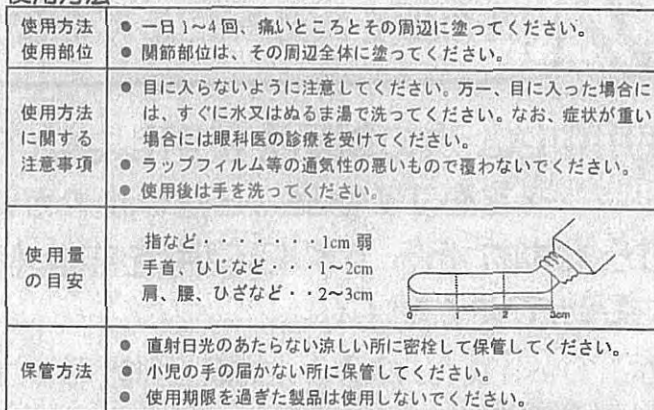 使用方法
使用部位
● 一日1~4回、痛いところとその周辺に塗ってください。
● 関節部位は、その周辺全体に塗ってください。
使用方法
に関する
注意事項
● 目に入らないように注意してください。万一、目に入った場合に
は、すぐに水又はぬるま湯で洗ってください。なお、症状が重い
場合には眼科医の診療を受けてください。
● ラップフィルム等の通気性の悪いもので覆わないでください。
● 使用後は手を洗ってください。
使用量
の目安
指など・・・・・・・1cm 弱
手首、ひじなど・・・1~2cm
肩、腰、ひざなど・・2~3cm
0 1 2 3cm
保管方法
● 直射日光のあたらない涼しい所に密栓して保管してください。
● 小児の手の届かない所に保管してください。
● 使用期限を過ぎた製品は使用しないでください。